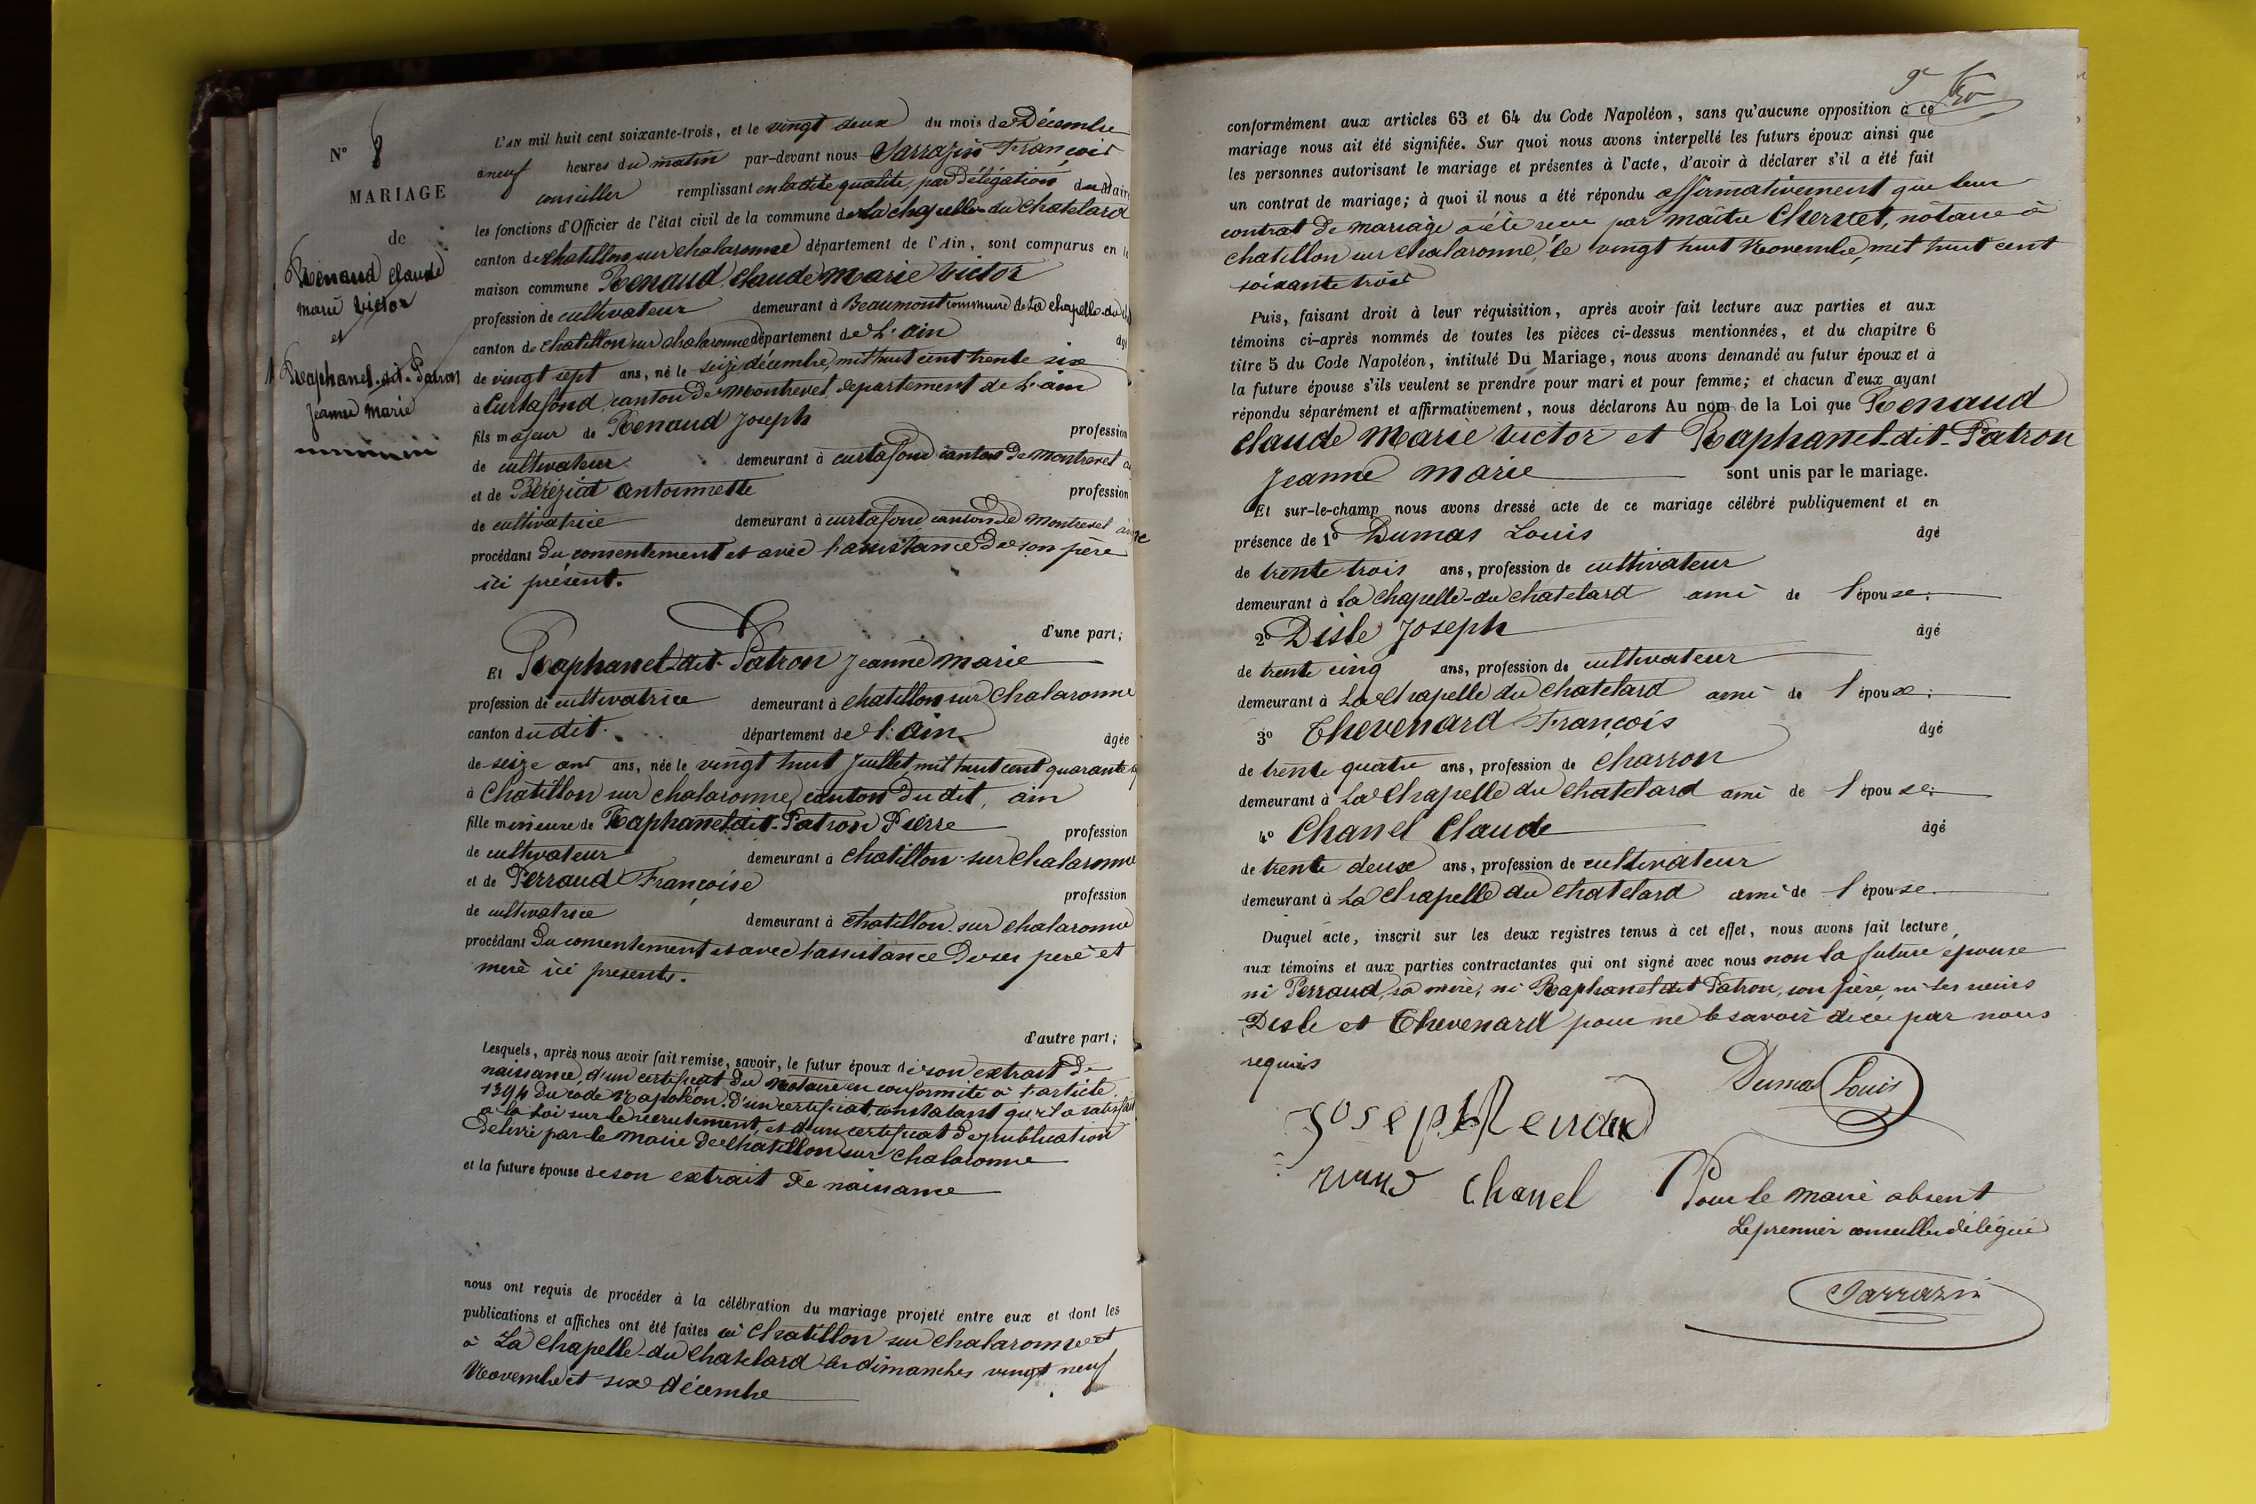 N° 8
MARIAGE
de
Renaud Claude
Marie Victor
et
Raphanel-dit-Patron
Jeanne Marie
L'AN mil huit cent soixante-trois, et le vingt deux du mois de Décembre
à neuf heures du matin par-devant nous Sarrazin François
conseiller remplissant en ladite qualité, par délégation du Maire
les fonctions d'Officier de l'état civil de la commune de La chapelle du Chatelard
canton de chatillon sur chalaronne département de l'Ain, sont comparus en la
maison commune Renaud Claude Marie Victor
profession de cultivateur demeurant à Beaumont commune de La Chapelle-du
canton de chatillon sur chalaronne département de L'ain
de vingt sept ans, né le seize décembre, mil huit cent trente six
à Curtafond, canton de Montrevel, département de L'ain
fils majeur de Renaud Joseph profession
de cultivateur demeurant à curtafond canton de Montrevel
et de Béréziat antoinette profession
de cultivatrice demeurant à curtafond canton de Montrevel ain
procédant du consentement et avec l'assistance de son père
ici présent.
d'une part;
Et Raphanel-dit-Patron Jeanne Marie
profession de cultivatrice demeurant à chatillon sur Chalaronne
canton dudit département de l'Ain âgée
de seize ans ans, née le vingt huit Juillet mil huit cent quarante
à Chatillon sur chalaronne, canton du dit, ain
fille mineure de Raphanel-dit-Patron Pierre profession
de cultivateur demeurant à chatillon-sur chalaronne
et de Perraud Françoise profession
de cultivatrice demeurant à chatillon-sur chalaronne
procédant du consentement et avec l'assistance de ses père et
mère ici présents.
d'autre part;
Lesquels, après nous avoir fait remise, savoir, le futur époux de son extrait de
naissance, d'un certificat du Notaire en conformité à l'article
1394 du code Napoléon, d'un certificat constatant qu'il a satisfait
à la Loi sur le recrutement, et d'un certificat de publication
délivré par le Maire de Chatillon sur Chalaronne
et la future épouse de son extrait de naissance
nous ont requis de procéder à la célébration du mariage projeté entre eux et dont les
publications et affiches ont été faites à Chatillon sur chalaronne et
à La Chapelle-du Chatelard les dimanches vingt neuf
Novembre et six décembre
conformément aux articles 63 et 64 du Code Napoléon, sans qu'aucune opposition à ce
mariage nous ait été signifiée. Sur quoi nous avons interpellé les futurs époux ainsi que
les personnes autorisant le mariage et présentes à l'acte, d'avoir à déclarer s'il a été fait
un contrat de mariage; à quoi il nous a été répondu affirmativement que leur
contrat de mariage a été reçu par maître Chervet, notaire à
chatillon sur chalaronne, le vingt huit Novembre, mil huit cent
soixante trois
Puis, faisant droit à leur réquisition, après avoir fait lecture aux parties et aux
témoins ci-après nommés de toutes les pièces ci-dessus mentionnées, et du chapitre 6
titre 5 du Code Napoléon, intitulé Du Mariage, nous avons demandé au futur époux et à
la future épouse s'ils veulent se prendre pour mari et pour femme; et chacun d'eux ayant
répondu séparément et affirmativement, nous déclarons Au nom de la Loi que Renaud
Claude Marie Victor et Raphanel-dit-Patron
Jeanne Marie sont unis par le mariage.
Et sur-le-champ nous avons dressé acte de ce mariage célébré publiquement et en
présence de 1° Dumas Louis âgé
de trente trois ans, profession de cultivateur
demeurant à La Chapelle-du Chatelard ami de l'épouse.
2° Disle Joseph âgé
de trente cinq ans, profession de cultivateur
demeurant à La Chapelle du Chatelard ami de l'épouse.
3° Thevenard François âgé
de trente quatre ans, profession de Charron
demeurant à La Chapelle du Chatelard ami de l'épouse.
4° Chanel Claude âgé
de trente deux ans, profession de cultivateur
demeurant à La Chapelle du Chatelard ami de l'épouse.
Duquel acte, inscrit sur les deux registres tenus à cet effet, nous avons fait lecture
aux témoins et aux parties contractantes qui ont signé avec nous non la future épouse
ni Perraud, sa mère, ni Raphanel dit Patron, son père, ni les sieurs
Disle et Thevenard pour ne le savoir de ce par nous
requis
Dumas Louis
Joseph Renaud
Chanel
Pour le maire absent
Le premier conseiller délégué
Sarrazin